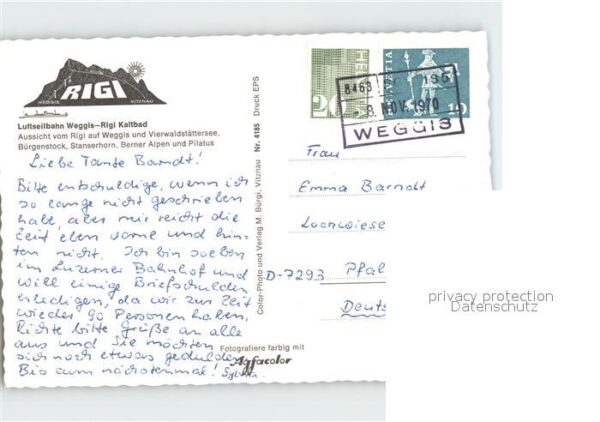 RIGI
WEGGIS
VITZNAU
Luftseilbahn Weggis–Rigi Kaltbad
Aussicht vom Rigi auf Weggis und Vierwaldstättersee,
Bürgenstock, Stanserhorn, Berner Alpen und Pilatus
Liebe Tante Barndt!
Bitte entschuldige, wenn ich
so lange nicht geschrieben
habe, aber mir reicht die
Zeit eben vorne und hin-
ten nicht. Ich bin soeben
im Luzerner Bahnhof und
will einige Briefschulden
erledigen, da wir zur Zeit
wieder 90 Personen haben.
Richte bitte Grüße an alle
aus und sie möchten
sich noch etwas gedulden.
Bis zum nächstenmal! Sylvia
Fotografiere farbig mit
Agfacolor
Color-Photo und Verlag M. Bürgi, Vitznau Nr. 4185 Druck EPS
HELVETIA
20
HELVETIA
10
8463
195
- 8. NOV. 1970
WEGGIS
Frau
Emma Barndt
D-7293 Pfal
Deuts
privacy protection
Datenschutz